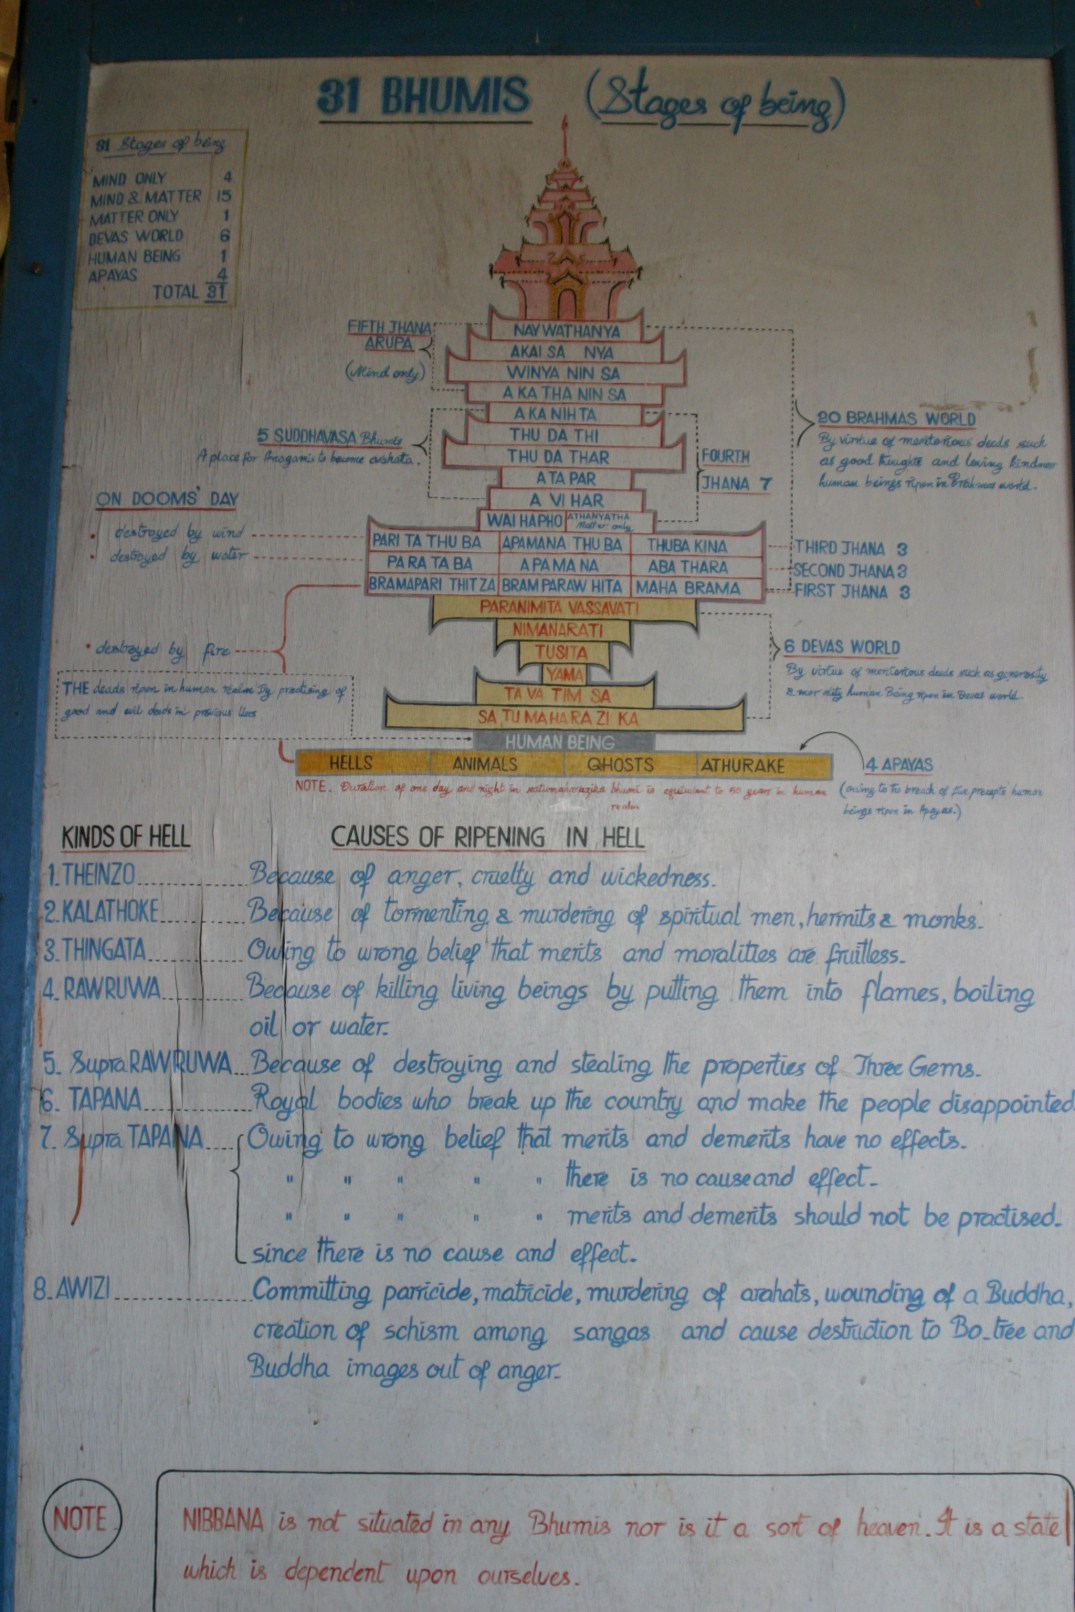 31 BHUMIS (Stages of being)
31 Stages of being
MIND ONLY 4
MIND & MATTER 15
MATTER ONLY 1
DEVAS WORLD 6
HUMAN BEING 1
APAYAS 4
TOTAL 31
FIFTH JHANA
ARUPA
(Mind only)
NAY WATHANYA
AKAI SA NYA
WINYA NIN SA
A KA THA NIN SA
A KA NIH TA
THU DA THI
THU DA THAR
ATA PAR
A VI HAR
WAI HAPHO ATHANYATHA
Matter only
20 BRAHMAS WORLD
By virtue of meritorious deeds such
as good thoughts and loving kindness
human beings ripen in Brahmas world.
5 SUDDHAVASA Bhumis
A place for Anagamis to become arahats.
FOURTH
JHANA 7
ON DOOMS' DAY
destroyed by wind
destroyed by water
PARI TA THU BA APAMANA THU BA THUBA KINA
THIRD JHANA 3
PA RA TA BA A PA MA NA ABA THARA
SECOND JHANA 3
BRAMAPARI THITZA BRAM PARAW HITA MAHA BRAMA
FIRST JHANA 3
PARANIMITA VASSAVATI
NIMANARATI
TUSITA
YAMA
TA VA TIM SA
SA TU MAHA RA ZI KA
6 DEVAS WORLD
By virtue of meritorious deeds such as generosity
& morality human being ripen in Devas world.
destroyed by fire
THE deads ripen in human realm by practising of
good and evil deeds in previous lives
HUMAN BEING
HELLS ANIMALS GHOSTS ATHURAKE
4 APAYAS
(owing to the breach of five precepts human
beings ripen in Apayas.)
NOTE. Duration of one day and night in satumaharazika bhumi is equivalent to 50 years in human
realm
KINDS OF HELL CAUSES OF RIPENING IN HELL
1. THEINZO Because of anger, cruelty and wickedness.
2. KALATHOKE Because of tormenting & murdering of spiritual men, hermits & monks.
3. THINGATA Owing to wrong belief that merits and moralities are fruitless.
4. RAWRUWA Because of killing living beings by putting them into flames, boiling
oil or water.
5. Supra RAWRUWA Because of destroying and stealing the properties of Three Gems.
6. TAPANA Royal bodies who break up the country and make the people disappointed
7. Supra TAPANA Owing to wrong belief that merits and demerits have no effects.
" " " " " there is no cause and effect.
" " " " " merits and demerits should not be practised.
since there is no cause and effect.
8. AWIZI Committing parricide, matricide, murdering of arahats, wounding of a Buddha,
creation of schism among sangas and cause destruction to Bo-tree and
Buddha images out of anger.
NOTE
NIBBANA is not situated in any Bhumis nor is it a sort of heaven. It is a state
which is dependent upon ourselves.